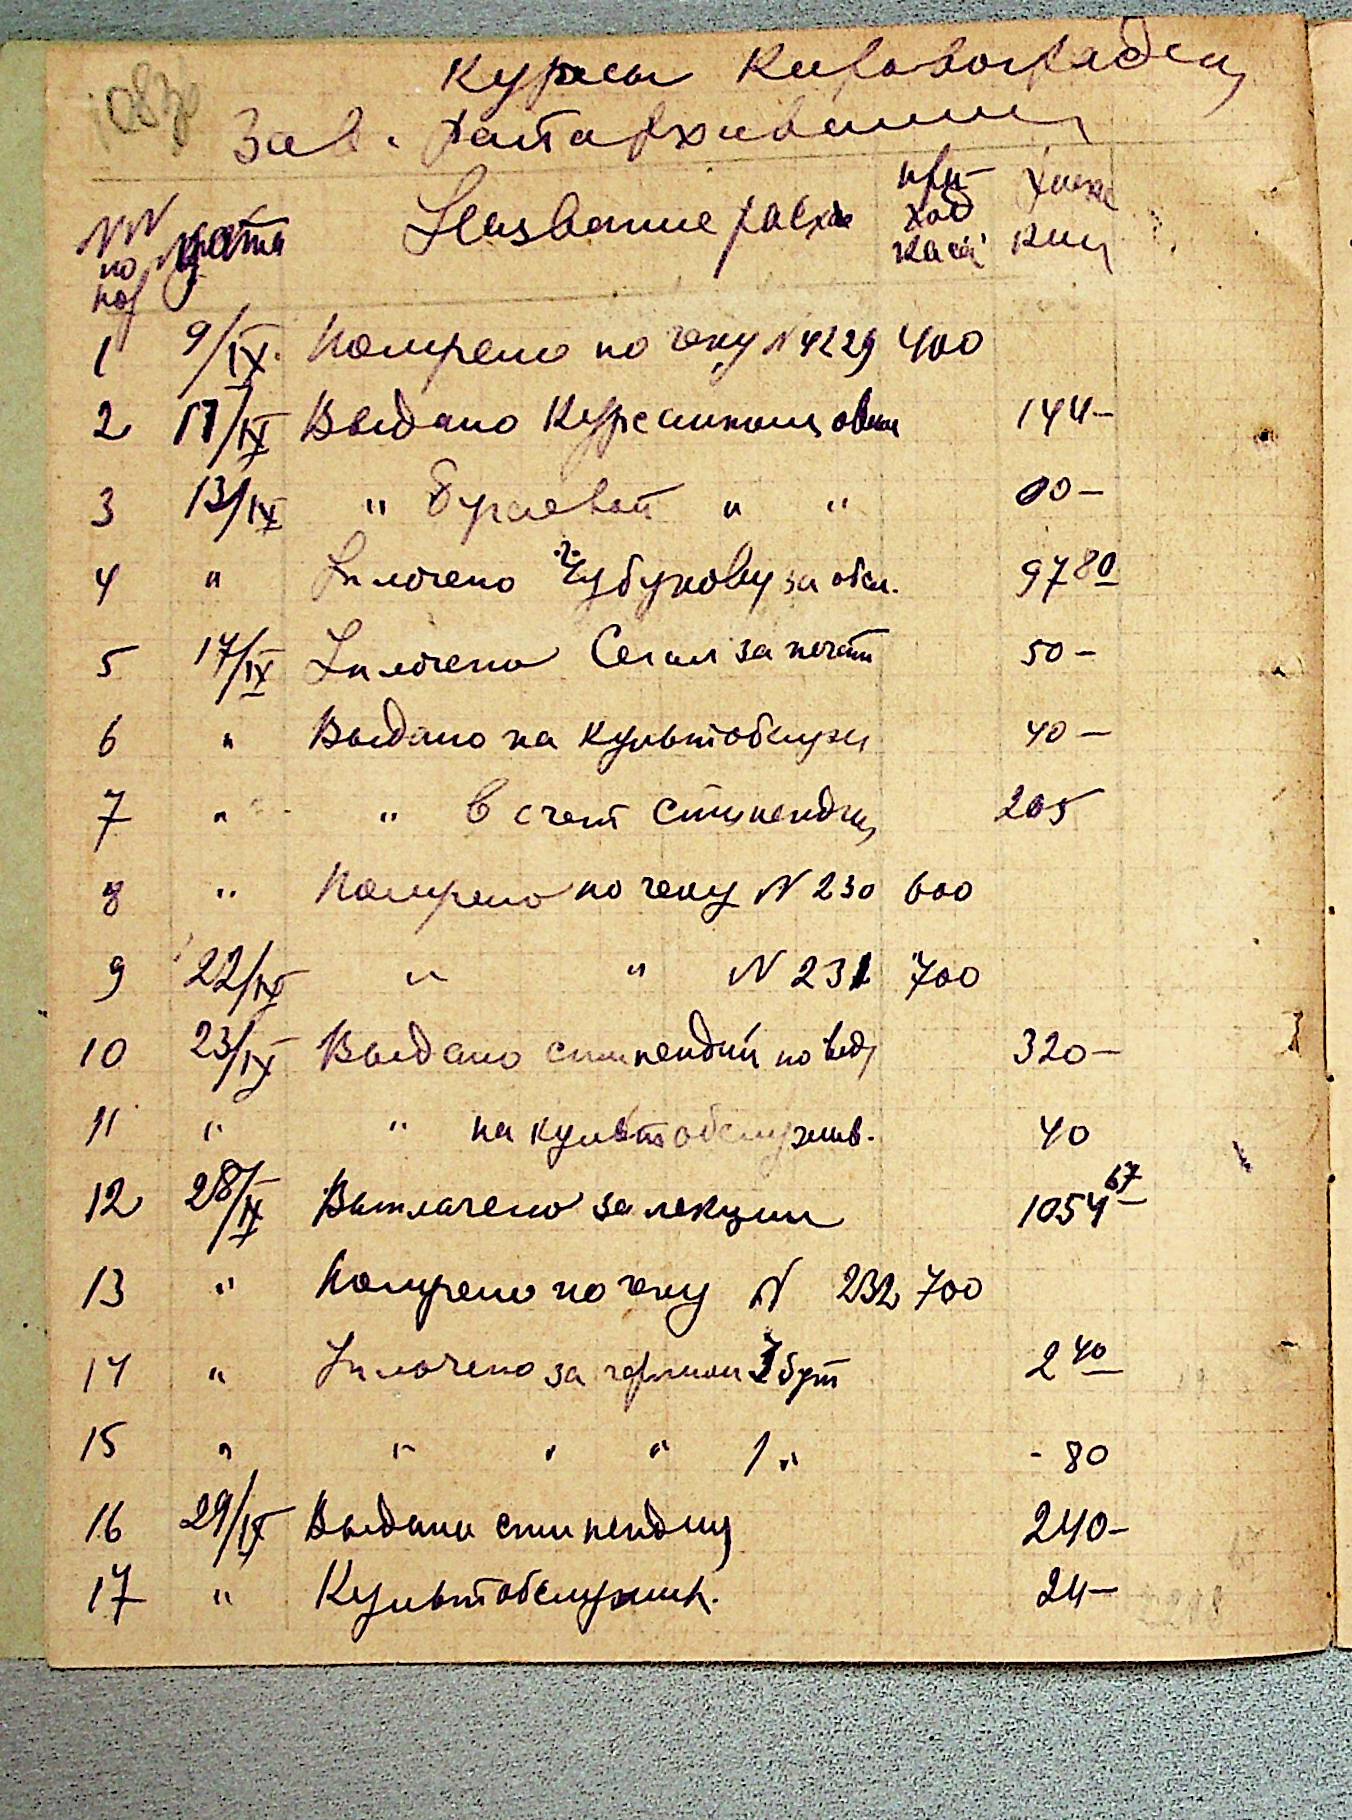 Курсы Кировоградск
Зав. райархивами
NN по пор дата Название расх приход касс
1 9/IX. Получено по чеку N 4229 400
2 17/IX Выдано Курсантам 144-
3 13/IX " " " 00-
4 " Уплочено Чубукову за обсл. 97 80
5 17/IX Уплочено Сегал за печат 50-
6 " Выдано на культобслуж 40-
7 " " в счет стипендии 205
8 " Получено по чеку N 230 600
9 22/IX " " N 231 700
10 23/IX Выдано стипендий по вед 320-
11 " " на культобслужив. 40
12 28/IX Выплачено за лекции 1054 67
13 " Получено по чеку N 232 700
14 " Уплочено за чернил 3 бут 2 40
15 " " " " 1 " - 80
16 29/IX Выдани стипендии 240-
17 " Культобслужив. 24-